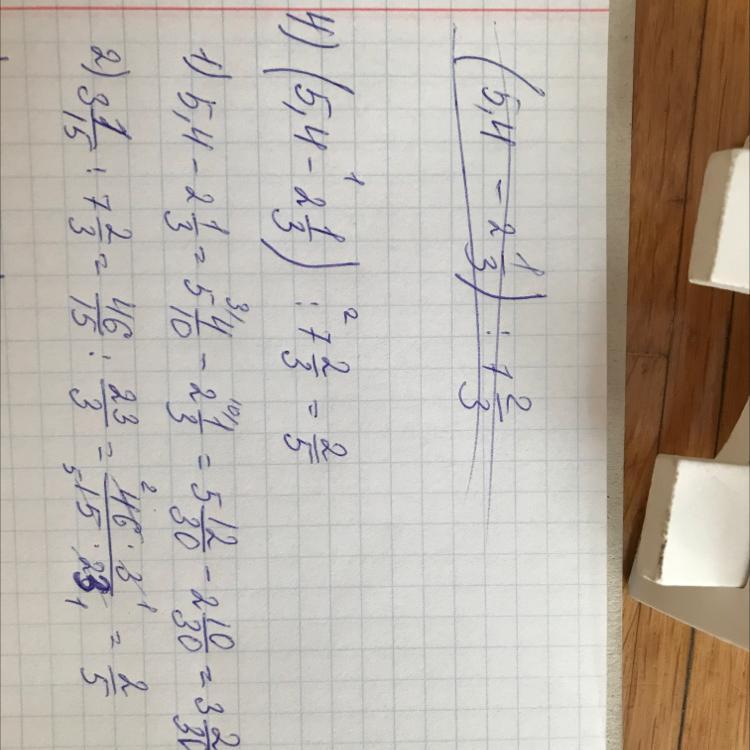 (5,4 - 2 1/3) : 1 2/3
4) (5,4 -¹ 2 1/3) :² 7 2/3 = 2/5
1) 5,4 - 2 1/3 = 5 ³⁾4/10 - 2 ¹⁰⁾1/3 = 5 12/30 - 2 10/30 = 3 2/30
2) 3 1/15 : 7 2/3 = 46/15 : 23/3 = 46² · 3¹ / ₅15 · 23₁ = 2/5